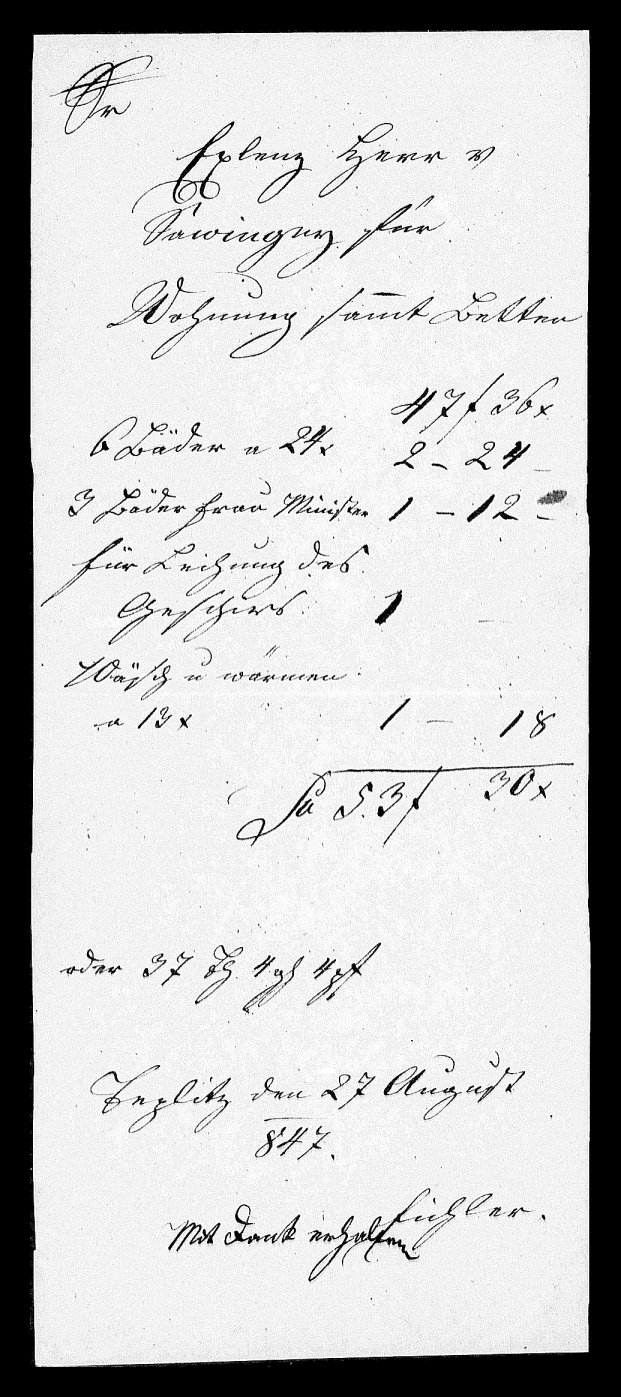 Sr
Exlenz Herr v
Sawinger für
Wohnung samt Betten
47 f 36x
6 Bäder a 24x 2 – 24 –
3 Bäder Frau Minister 1 – 12 –
für Leihung des
Geschirs 1 –
Wäsch u wärmen
a 13x 1 – 18
Sa 53 f 30x
oder 37 Th 4 gh 4 pf
Teplitz den 27 August
847.
Eichler.
Mit Dank erhalten